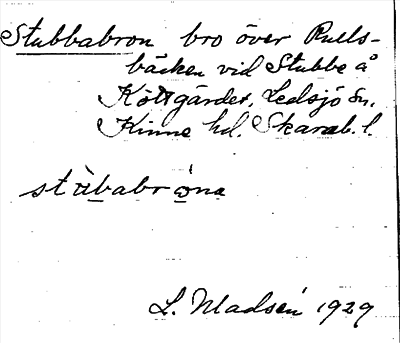 Stubbabron bro över Pulls-
bäcken vid Stubbe å
Köttgärdet, Ledsjö sn,
Kinne hd. Skarab. l.
stùbabrò̱na
L. Madsén 1929